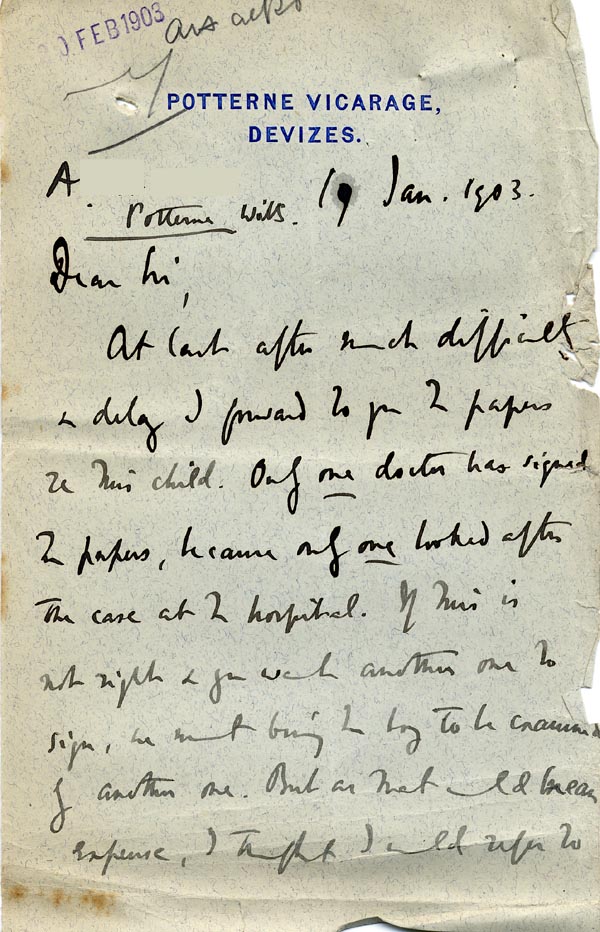 0 FEB 1903
POTTERNE VICARAGE,
DEVIZES.
A
Potterne Wilts. 19 Jan. 1903.
Dear Sir,
At last after much difficulty
& delay I forward to you the papers
re this child. Only one doctor has signed
the papers, because only one looked after
the case at the hospital. If this is
not right & you want another one to
sign, we must bring the boy to be examined
by another one. But as that would mean
expense, I thought I would refer to